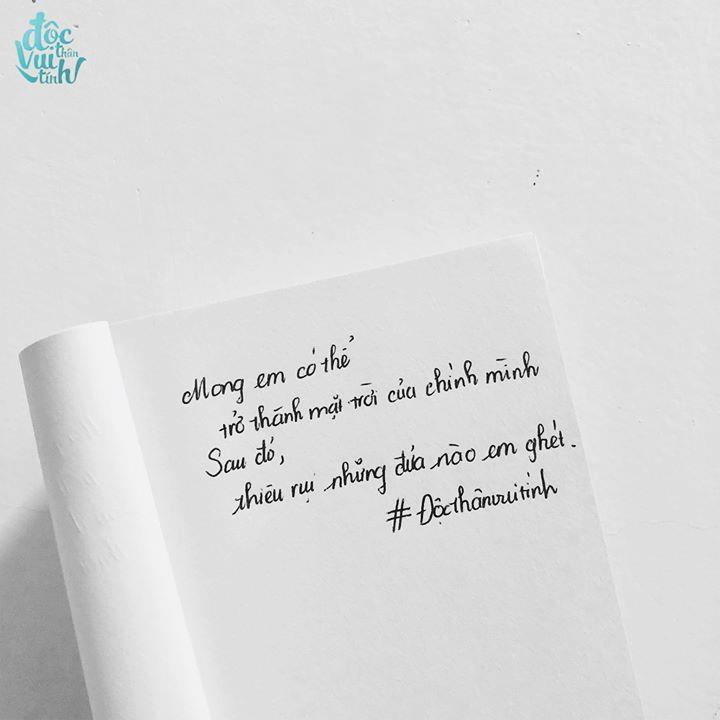 độc
thân
vui
tính
Mong em có thể
trở thành mặt trời của chính mình
Sau đó,
thiêu rụi những đứa nào em ghét.
#Độcthânvuitính